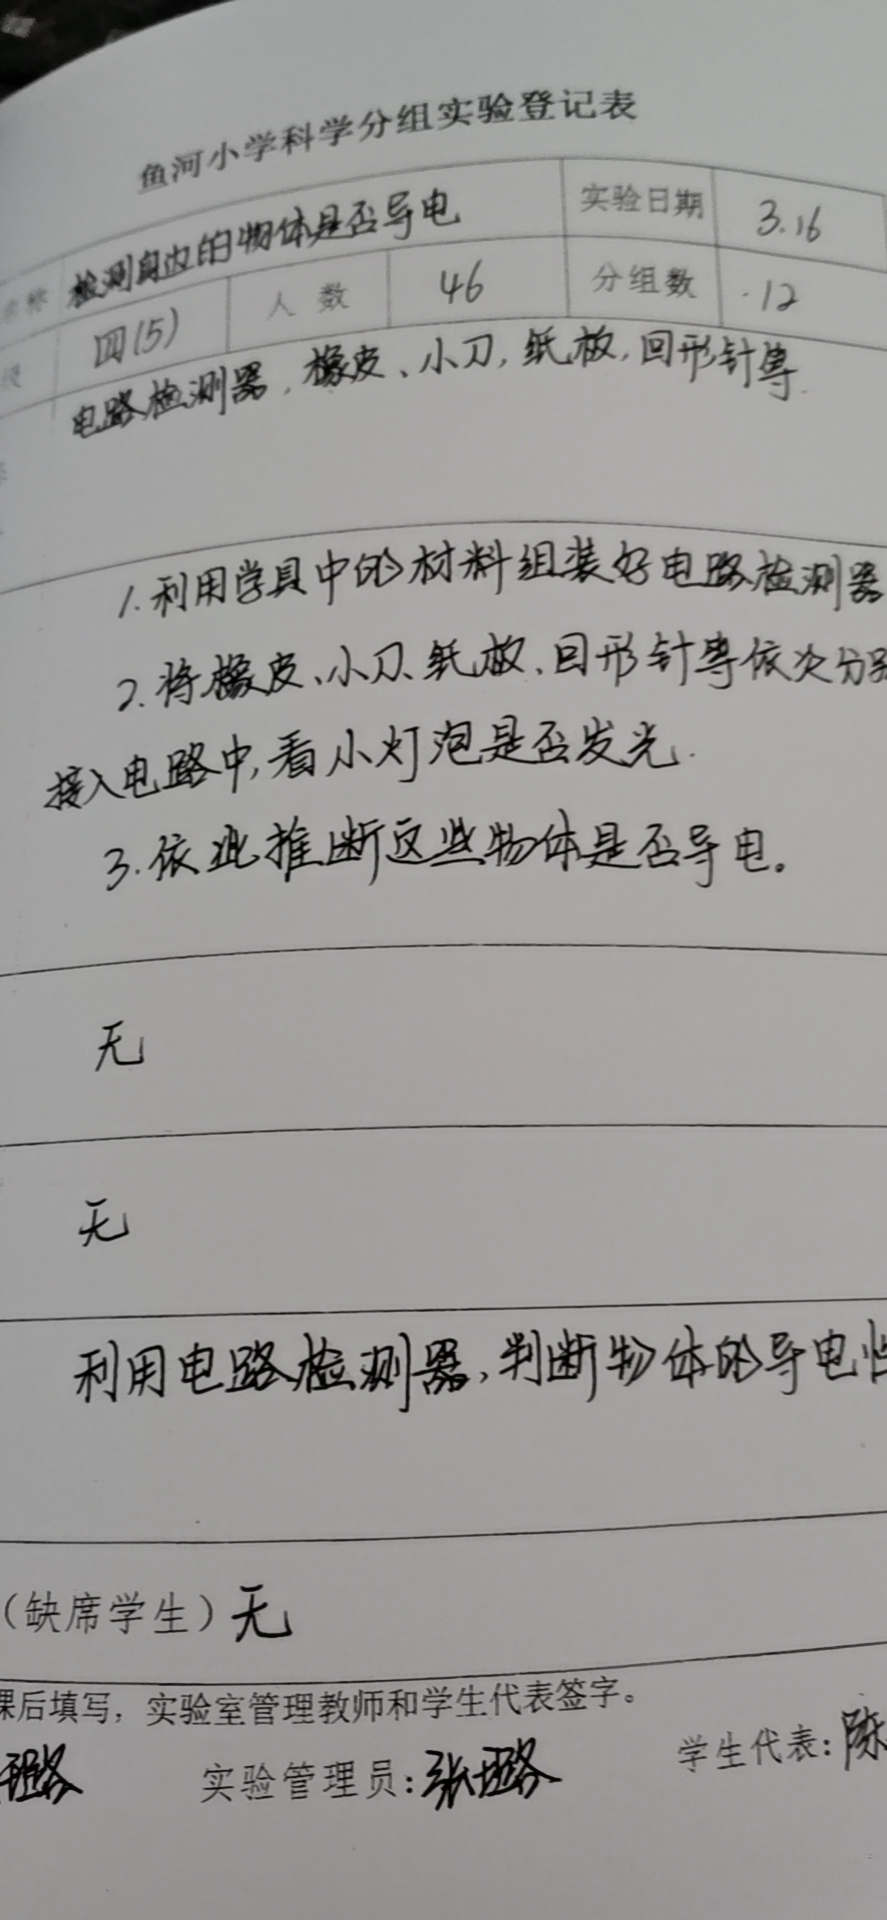 鱼河小学科学分组实验登记表
名称 检测身边的物体是否导电 实验日期 3.16
级 四(5) 人数 46 分组数 12
电路检测器、橡皮、小刀、纸板、回形针等.
1.利用学具中的材料组装好电路检测器
2.将橡皮、小刀、纸板、回形针等依次分别
接入电路中,看小灯泡是否发光.
3.依此推断这些物体是否导电。
无
无
利用电路检测器,判断物体的导电性
(缺席学生)无
课后填写,实验室管理教师和学生代表签字。
实验管理员:张璐 学生代表:陈